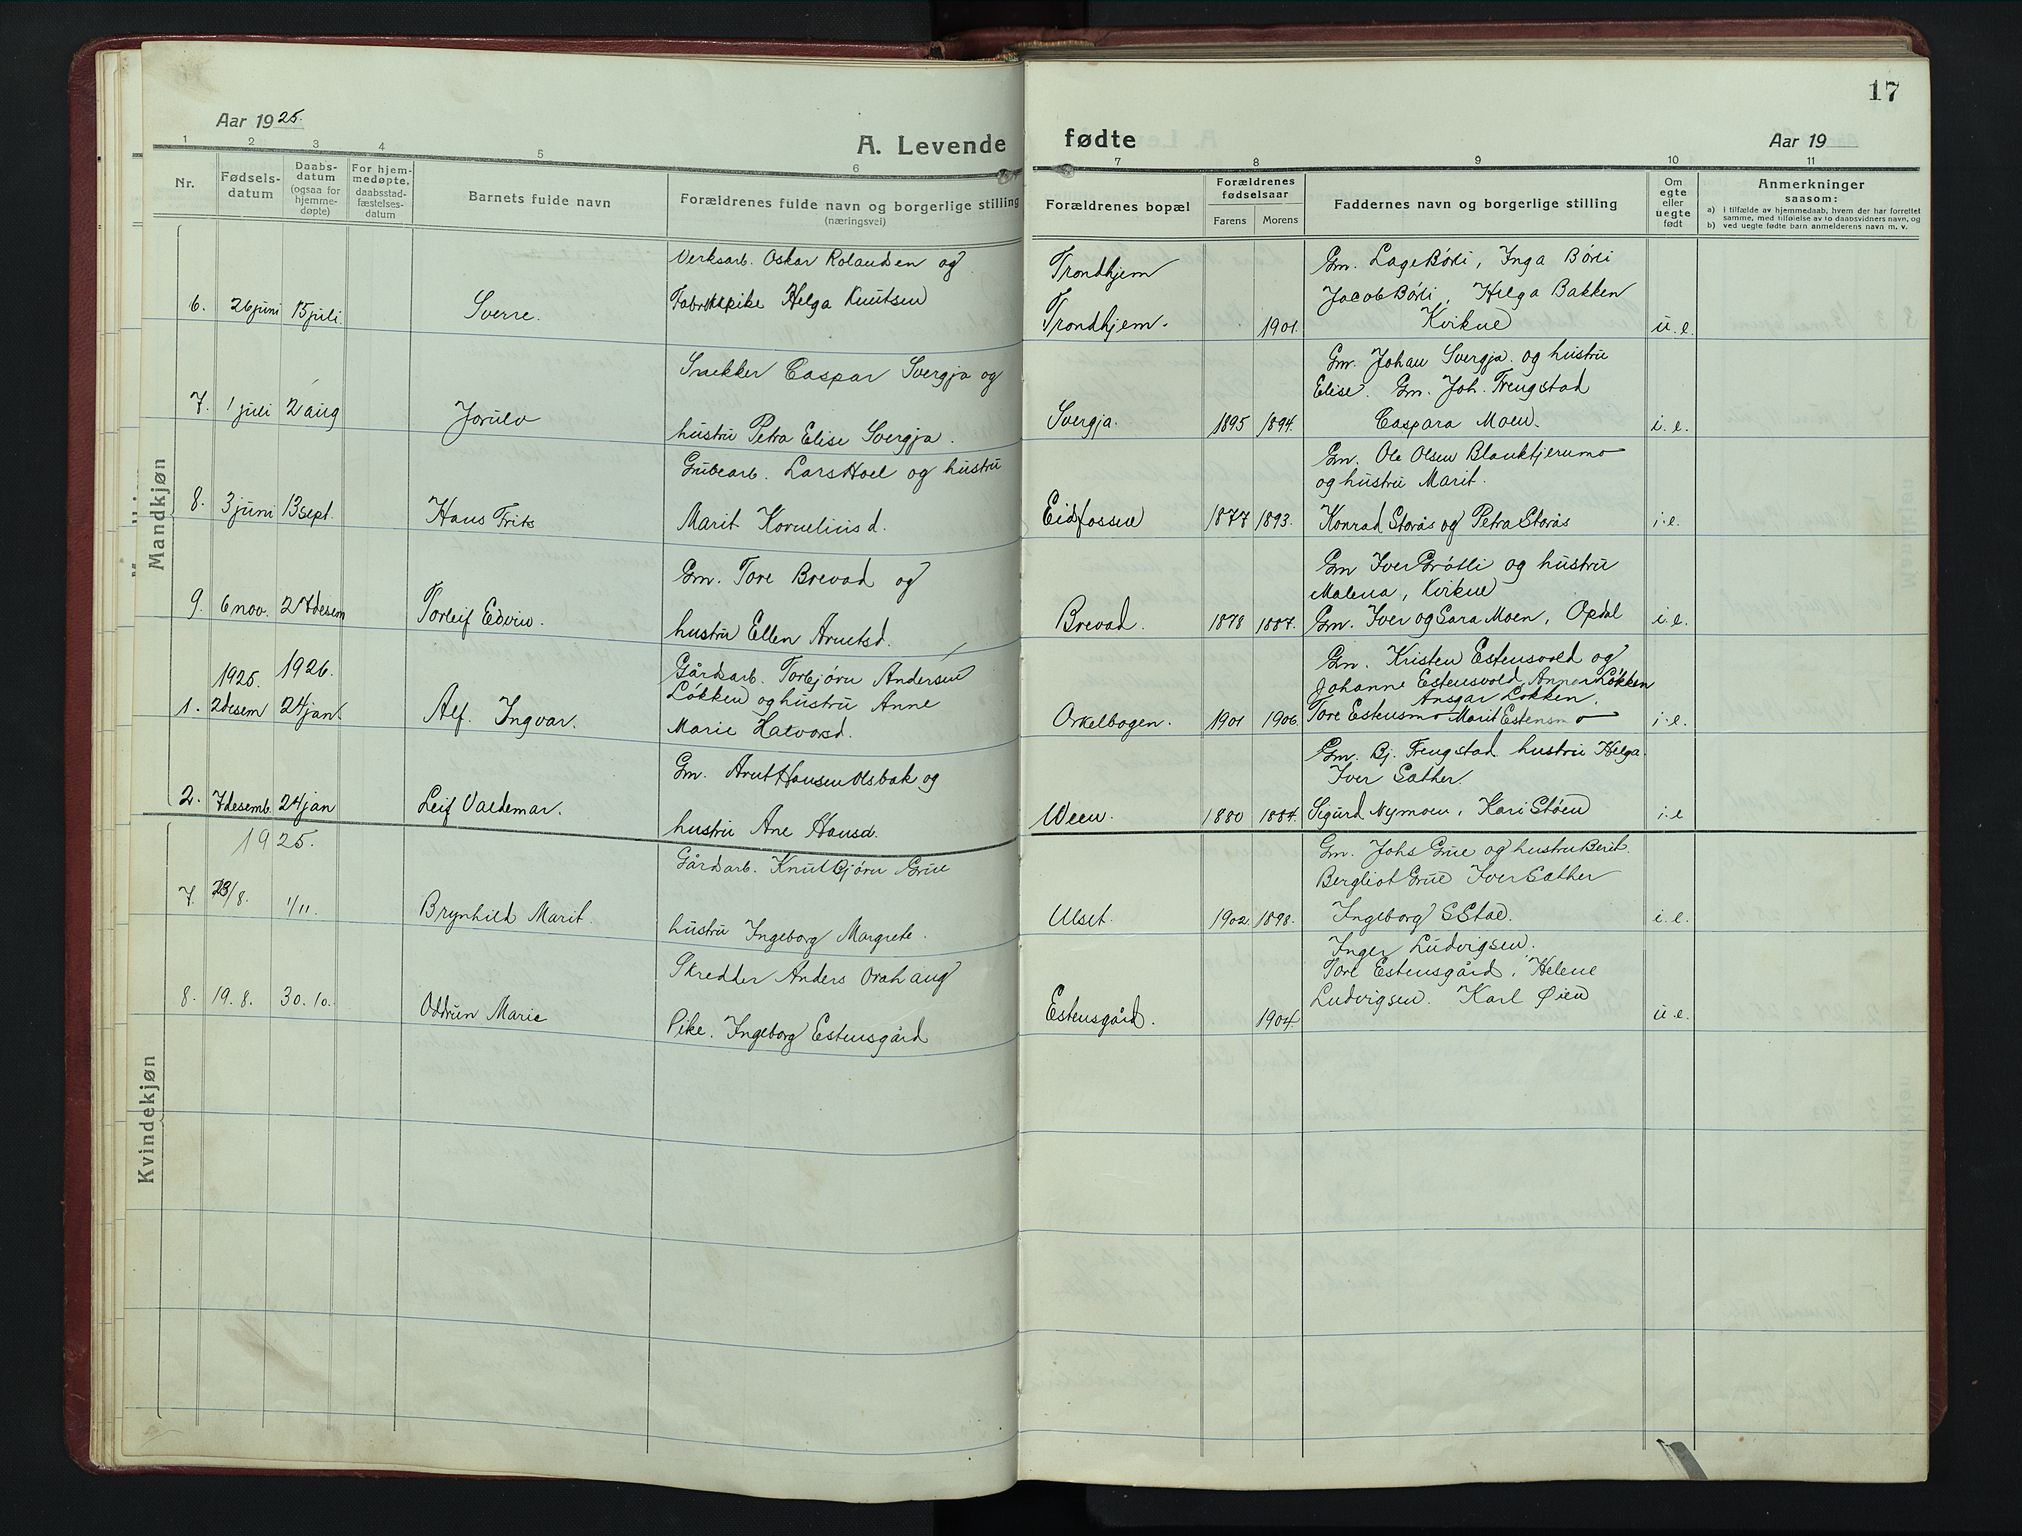 17
Aar 1925.
A. Levende
fødte
Aar 19
1 2 3 4 5 6 7 8 9 10 11
Nr.
Fødsels-
datum
Daabs-
datum
(ogsaa for
hjemme-
døpte)
For hjem-
medøpte,
daabsstad-
fæstelses-
datum
Barnets fulde navn
Forældrenes fulde navn og borgerlige stilling
(næringsvei)
Forældrenes bopæl
Forældrenes
fødselsaar
Farens Morens
Faddernes navn og borgerlige stilling
Om
egte
eller
uegte
født
Anmerkninger
saasom:
a) i tilfælde av hjemmedaab, hvem der har forrettet
samme, med tilføielse av to daabsvidners navn, og
b) ved uegte fødte barn anmelderens navn m. v.
Mandkjøn
6. 26 juni 15 juli. Sverre.
Verksarb. Oskar Rolandsen og
Fabrikkpike Helga Knutsen
Trondhjem
Trondhjem. 1901.
Gm. Lage Børli, Inga Børli
Jacob Børli, Helga Bakken
Kvikne
u. e.
7. 1 juli 2 aug Jorulv
Snekker Caspar Svergja og
hustru Petra Elise Svergja.
Svergja. 1895 1894.
Gm. Johan Svergja og hustru
Elise. Gm. Joh. Frengstad
Caspara Moen.
i. e.
8. 3 juni 13 sept. Hans Frits
Grubearb. Lars Hoel og hustru
Marit Korneliusd.
Eidsfossen 1877 1893.
Gm. Ole Olsen Blanktjernmo
og hustru Marit.
Konrad Storås og Petra Storås
i. e.
9. 6 nov. 27 desem Torleif Edvin.
Gm. Tore Brevad og
hustru Ellen Arntsd.
Brevad. 1878 1887.
Gm Iver Grøtli og hustru
Malena, Kvikne
Gm. Iver og Sara Moen, Opdal
i. e.
1925. 1926.
1. 2 desem 24 jan. Alf Ingvar.
Gårdsarb. Torbjørn Andersen
Løkken og hustru Anne
Marie Halvorsd.
Orkelbogen. 1901 1906.
Gm. Kristen Estensvold og
Johanne Estensvold, Anne Løkken
Ansgar Løkken,
Tore Estensmo Marit Estensmo
i. e.
2. 7 desemb. 24 jan Leif Valdemar.
Gm. Arnt Hansen Olsbak og
hustru Ane Hansd.
Ween. 1880 1884.
Gm. Bj. Frengstad hustru Helga.
Iver Sæther
Sigurd Nymoen, Kari Støen
i. e
Kvindekjøn
1925.
7. 23/8. 1/11. Brynhild Marit.
Gårdsarb. Knut Bjørn Grue
hustru Ingeborg Margrete.
Ulset. 1902. 1898.
Gm. Johs Grue og hustru Berit.
Bergliot Grue Iver Sæther
Ingeborg S Stad.
i. e.
8. 19. 8. 30. 10. Oddrun Marie
Skredder Anders Orahaug
Pike. Ingeborg Estensgård
Estensgård. 1904.
Inger Ludvigsen.
Tore Estensgård, Helene
Ludvigsen. Karl Øien
u. e.